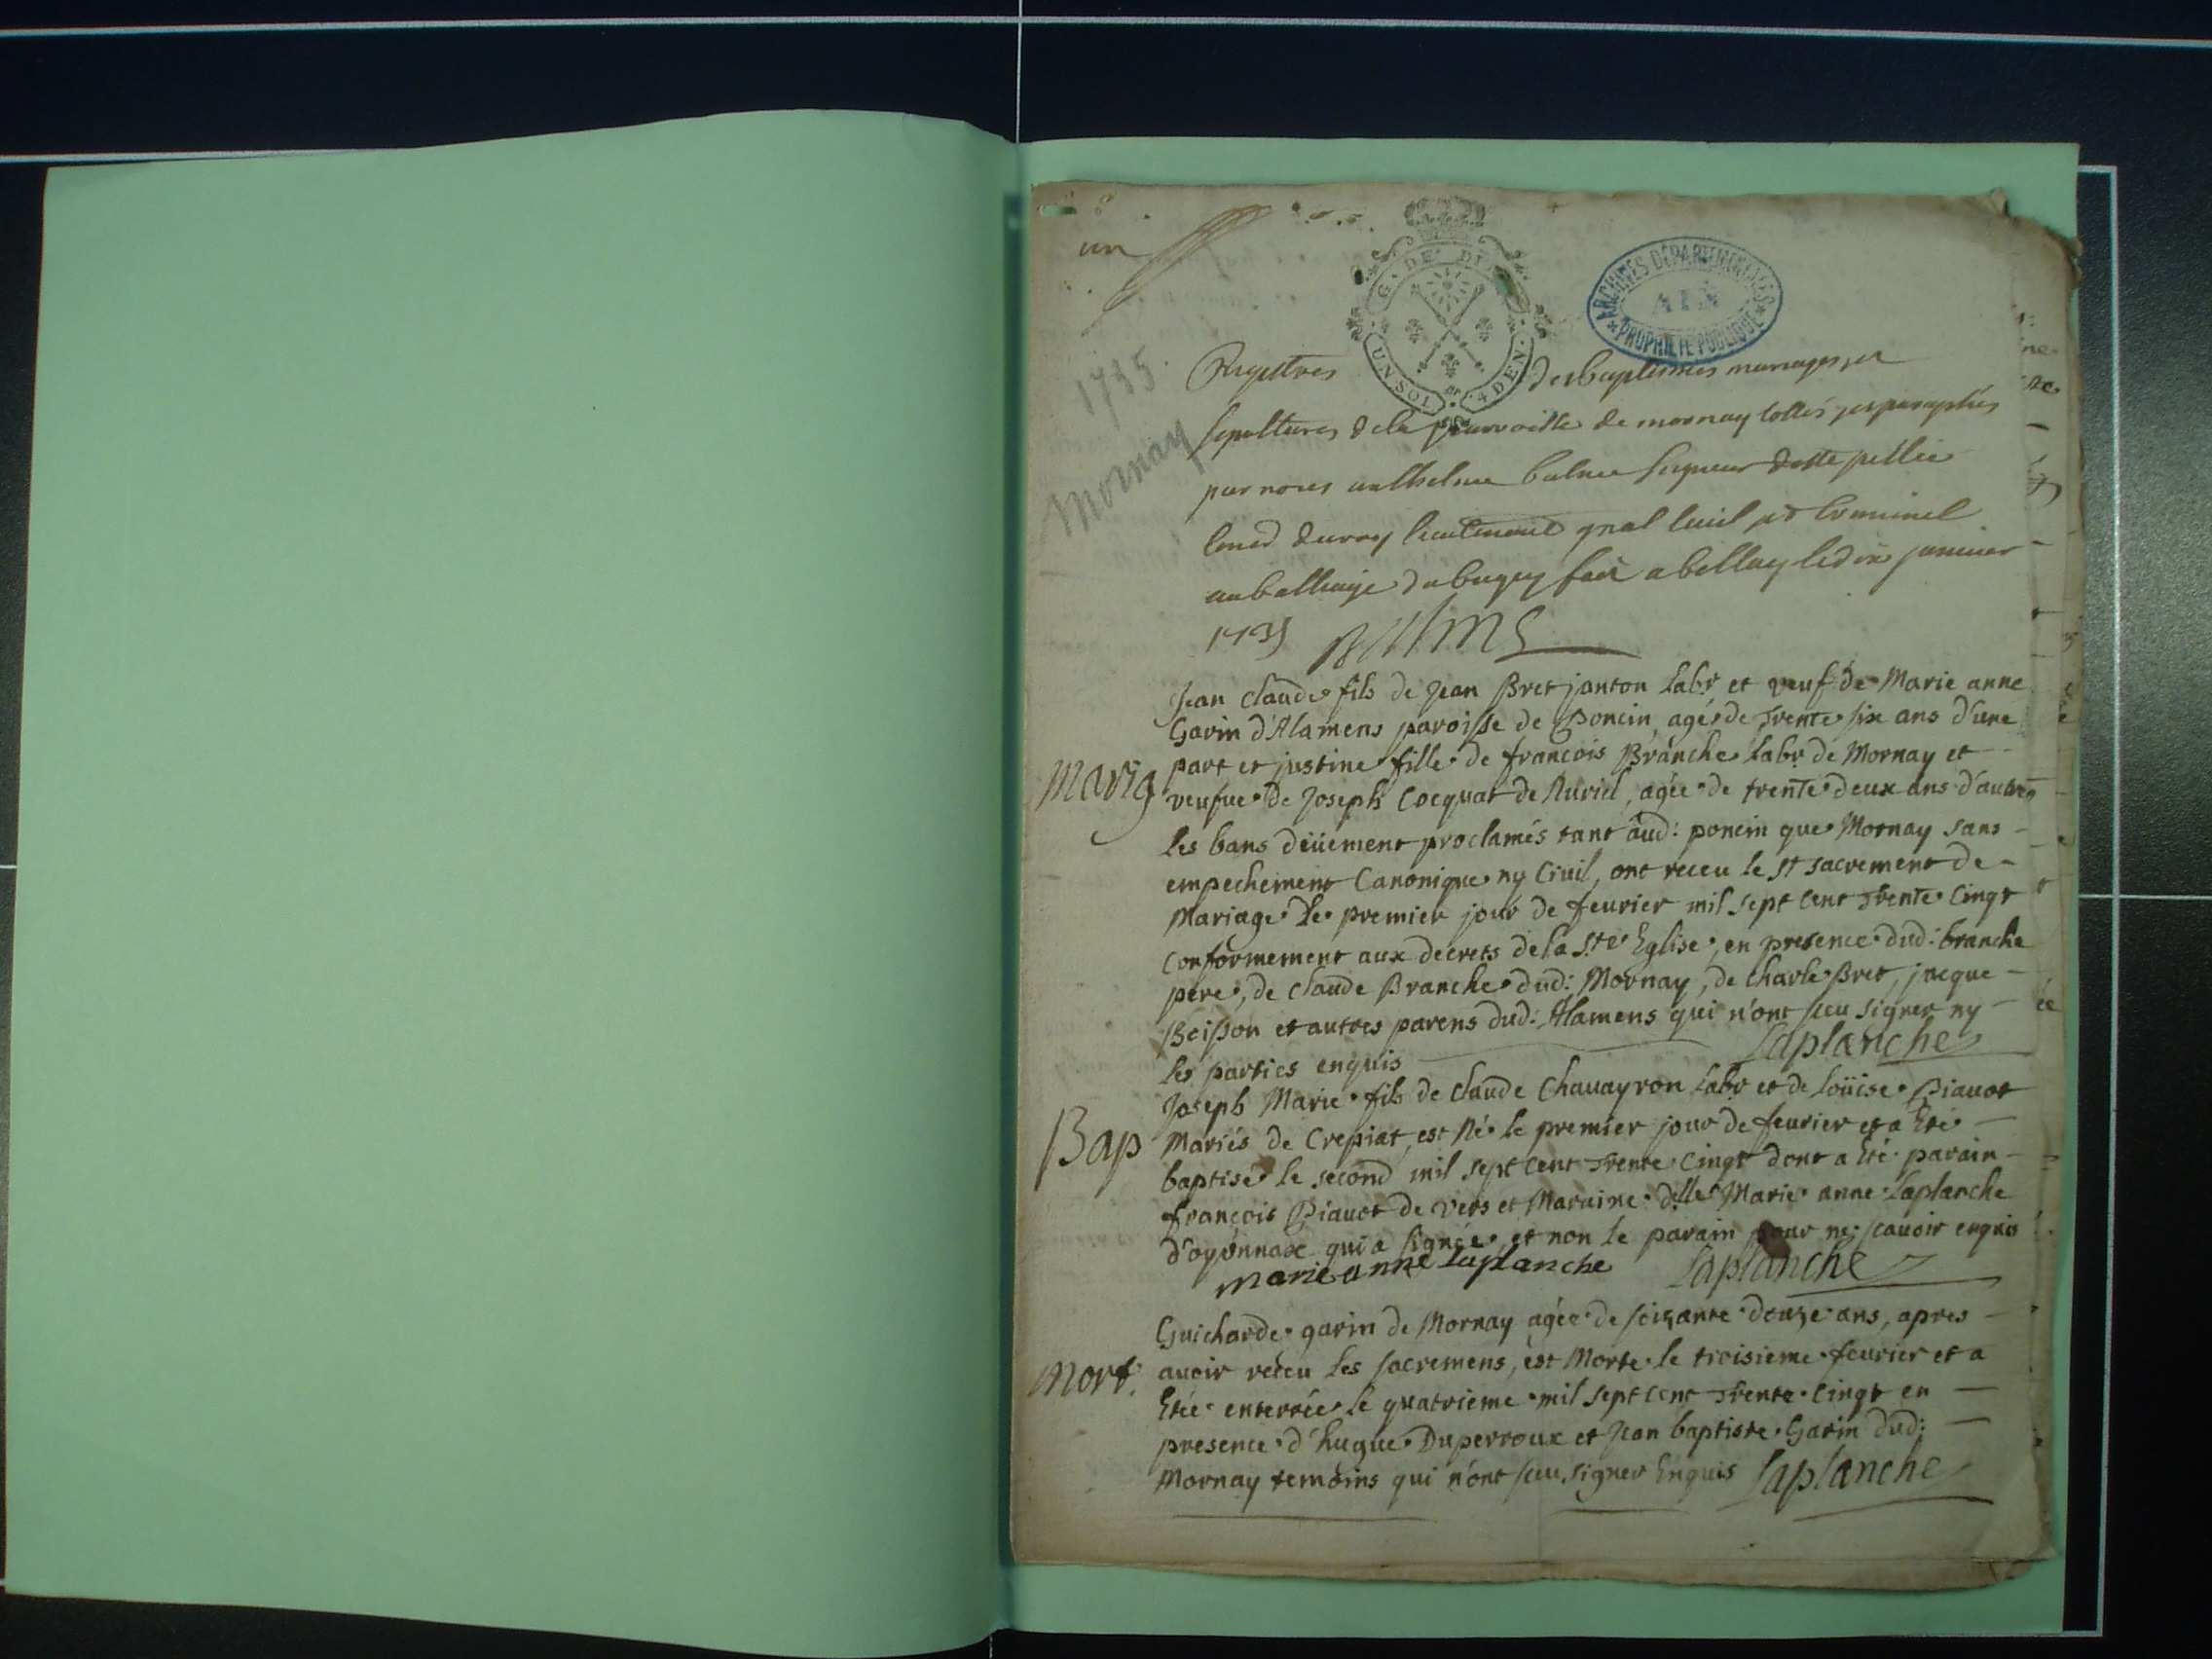 un
G. DE DI
UN SOL 4 DEN.
ARCHIVES DÉPARTEMENTALES
AIN
PROPRIÉTÉ PUBLIQUE
1735
Mornay
Registres des baptismes mariages et
sepultures de la parroisse de mornay cottés et paraphés
par nous anthelme balme seigneur
du roy lieutenant gnal civil et criminel
au balliage du bugey fait a bellay le janvier
1735
Mariag
Jean claude fils de Jean Bret janton labr et veuf de Marie anne
Garin d'Alamens paroisse de Poncin, agé de trente six ans d'une
part et justine fille de françois Branche labr de Mornay et
veufue de Joseph Cocquat de Nuriel, agée de trente deux ans d'autre
les bans deüement proclamés tant aud: poncin que Mornay sans
empechement Canonique ny Ciuil, ont receu le st sacrement de
Mariage le premier jour de feurier mil sept cent trente cinqt
conformement aux decrets de la ste Eglise, en presence dud: branche
pere, de claude Branche dud: Mornay, de Charle Bret, jacque
Beisson et autres parens dud: Alamens qui n'ont sceu signer ny
les parties enquis
Laplanche
Bap
Joseph Marie fils de claude Chauayron Labr et de Loüise Piauot
Mariés de Crepiat, est Né le premier jour de feurier et a Eté
baptisé le second mil sept cent trente cinqt dont a Eté parain
françois Piauot de vers et Maraine delle Marie anne Laplanche
d'oyonnax qui a signée, et non le parain pour ne scauoir enquis
marie anne laplanche Laplanche
Mort.
Guicharde garin de Mornay agée de soixante douze ans, apres
auoir receu les sacremens, est Morte le troisieme feurier et a
Etée enterrée le quatrieme mil sept cent trente cinqt en
presence d'hugue Duperroux et Jean baptiste Garin dud:
Mornay temoins qui n'ont sceu signer Enquis Laplanche